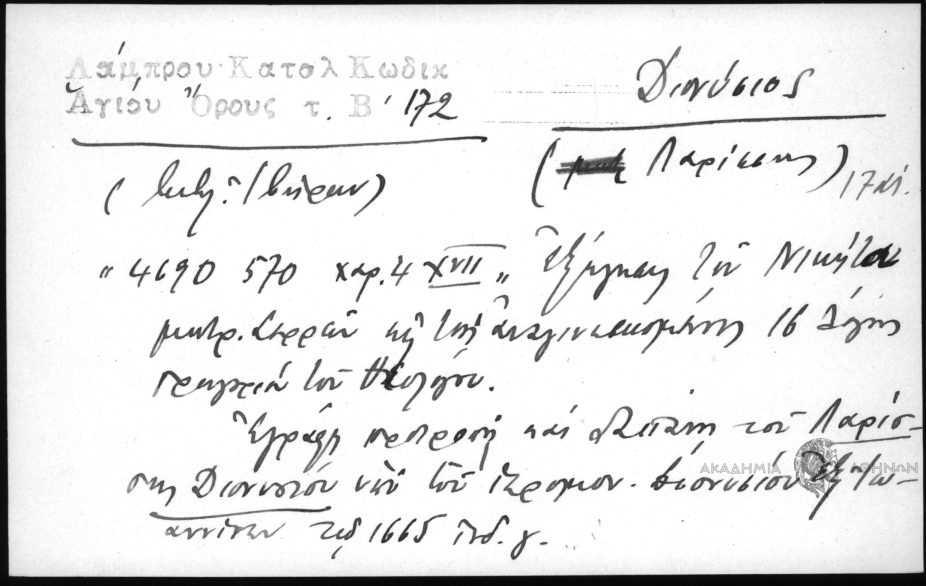 Λάμπρου Καταλ Κωδικ
Ἁγίου Ὄρους τ. Β΄ 172
Διονύσιος
( Λαρίσσης) 17 αἰ.
(Βιβλ. Ἰβήρων)
" 4690 570 χαρ. 4 XVII " Ἐξήγησις τοῦ Νικήτα
μητρ. Σερρῶν εἰς τοὺς ἀναγινωσκομένους 16 λόγους
Γρηγορίου τοῦ Θεολόγου.
Ἐγράφη προτροπῇ καὶ δαπάνῃ τοῦ Λαρίσ-
σης Διονυσίου ὑπὸ τοῦ ἱερομον. Διονυσίου ἐξ Ἰω-
αννίνων τῷ 1665 ἰνδ. γ.
ΑΚΑΔΗΜΙΑ ΑΘΗΝΩΝ